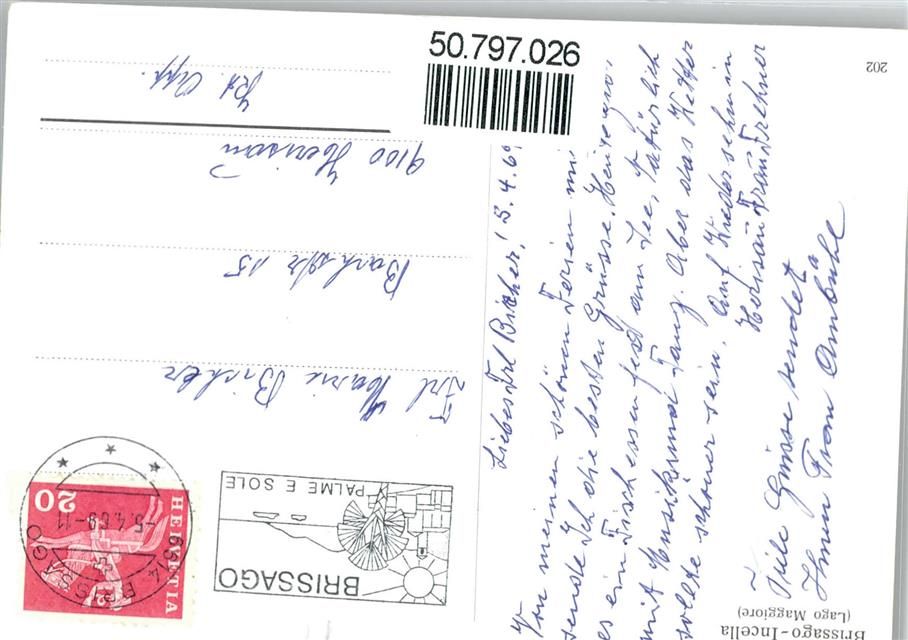 50.797.026
202
Brissago-Incella
(Lago Maggiore)
Liebes Frl Bicher! 5.4.69
Von meinen schönen Ferien
sende Ich die besten Grüsse. Heute
es ein Fischessen fest am See, Natürlich
mit Musik und Tanz. Aber das Wetter
sollte schöner sein. Auf Wiedersehn in
Herisau Frau Frehner
Viele Grüsse sendet
Ihnen Frau Ambühl
HELVETIA
20
6614 BRISSAGO
-5.4.69-11
BRISSAGO
PALME E SOLE
Frl Marie Bicher
Bachstr 15
9100 Herisau
Kt. App.